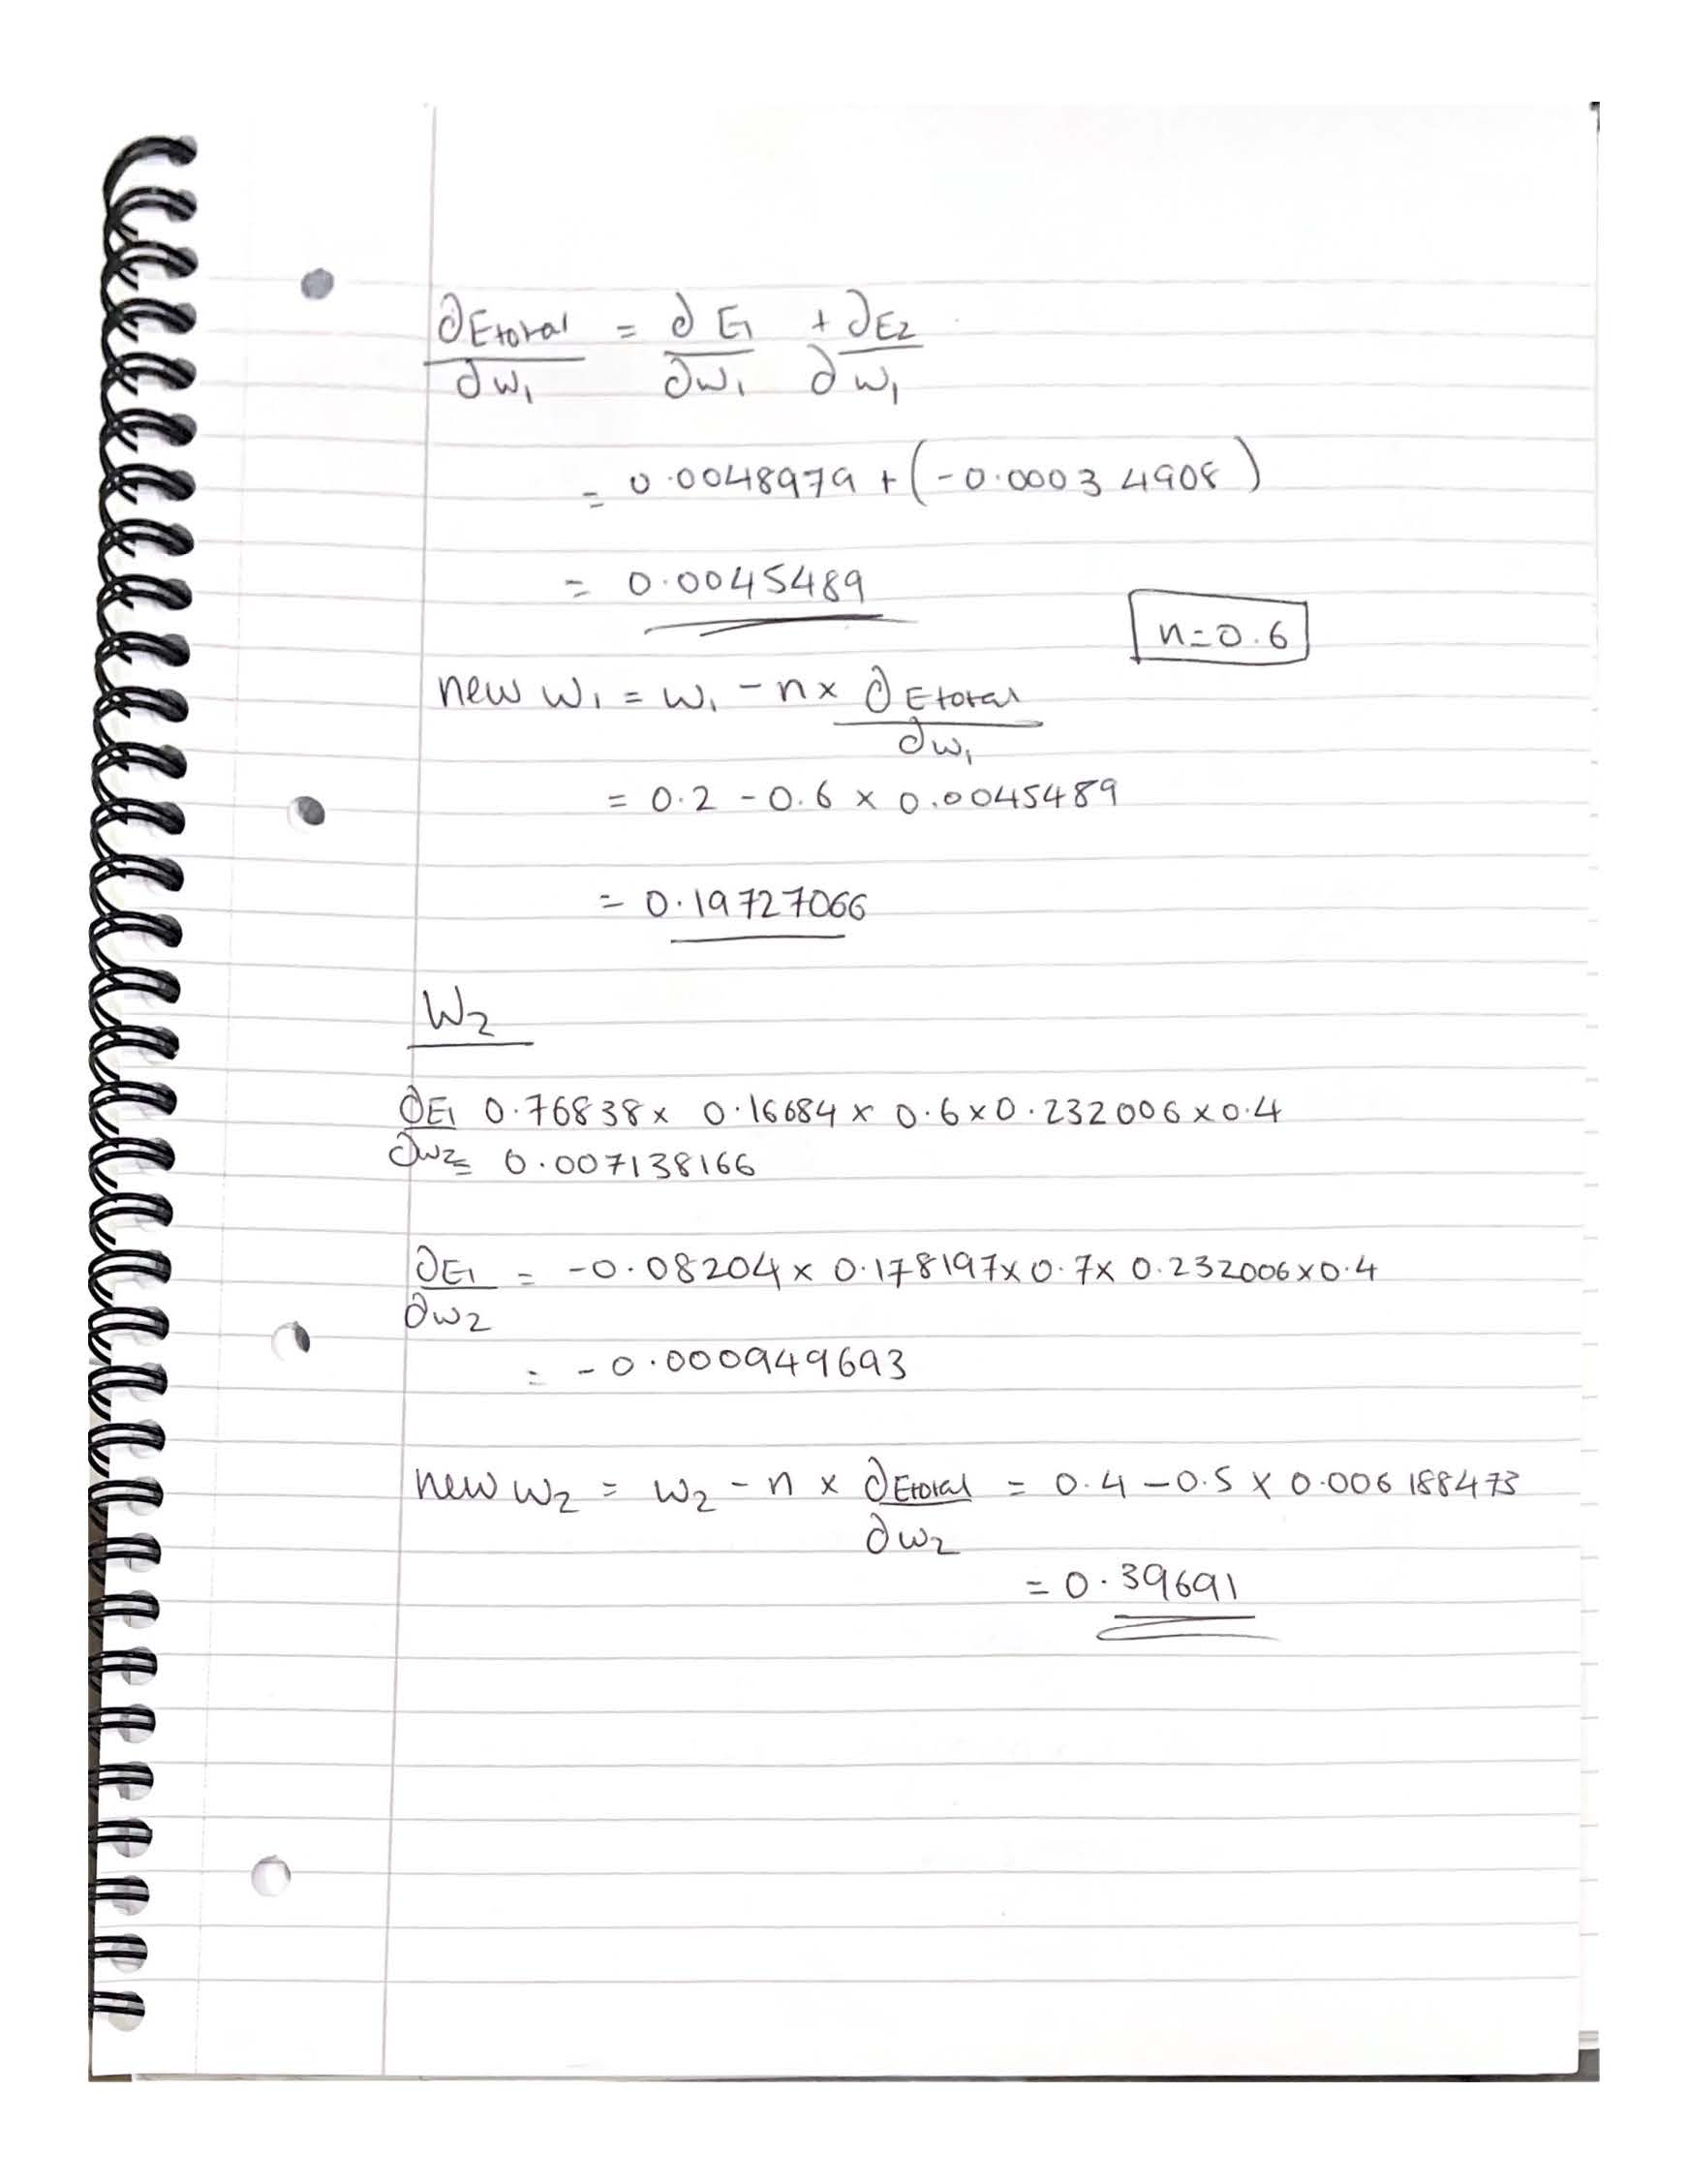 ∂Etotal = ∂E1 + ∂E2
∂w1 ∂w1 ∂w1
= 0.0048979 + (-0.00034908)
= 0.0045489
n=0.6
new w1 = w1 - n x ∂Etotal
∂w1
= 0.2 - 0.6 x 0.0045489
= 0.19727066
W2
∂E1 0.76838 x 0.16684 x 0.6 x 0.232006 x 0.4
∂w2 = 0.007138166
∂E1 = -0.08204 x 0.178197 x 0.7 x 0.232006 x 0.4
∂w2
= -0.000949693
new w2 = w2 - n x ∂Etotal = 0.4 - 0.5 x 0.006188473
∂w2
= 0.39691